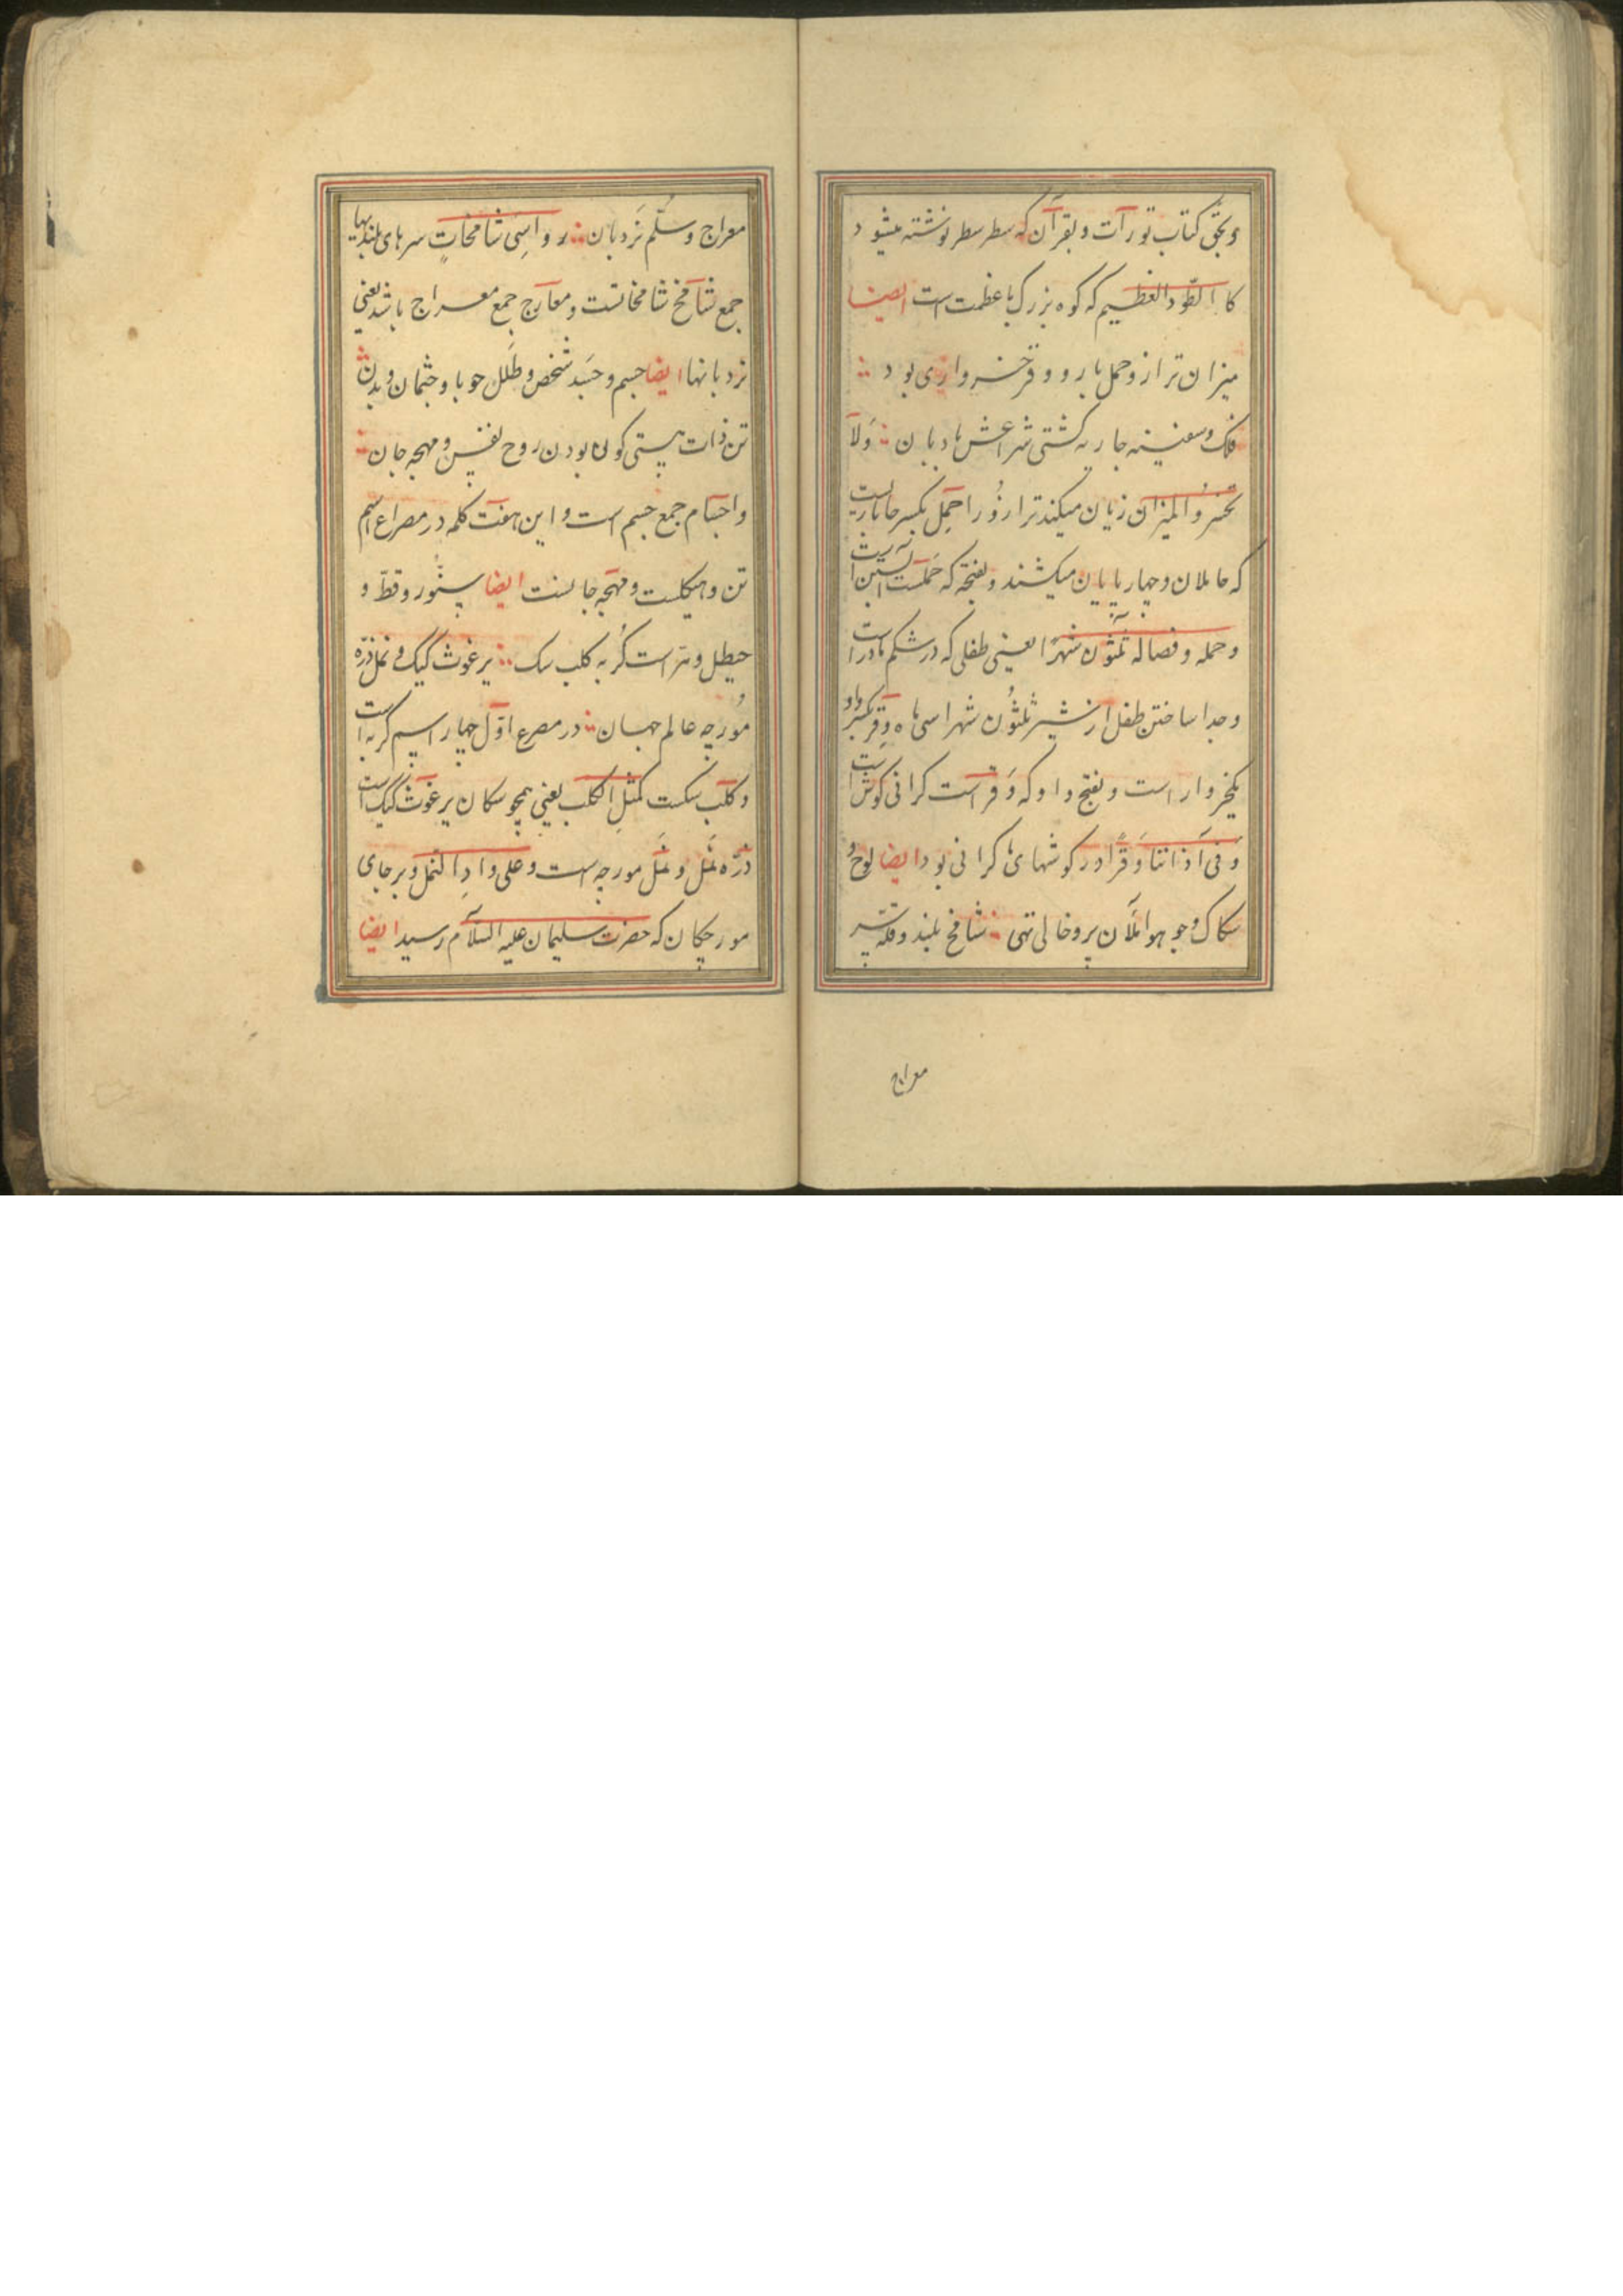 و بحق کتاب تورات و بقرآن که سطر سطر نوشته میشود
کا الطّود العظیم که کوه بزرک با عظمت است ایضا
میزان ترازو حمل بار و وقر خرواری بود
فلک و سفینه جاریه کشتی شراعش بادبان وَلَا
تخسروا المیزان زیان میکند ترازو را حِمل بکسر
که حاملان و چهارپایان میکشند و بفتحه که حملست
و حمله و فصاله ثلثون شهرًا یعنی طفلی که در شکم مادر است
و جدا ساختن طفل از شیر ثلثُون شهرا سی ماه وِقر بکسر واو
یکخروار است و بفتح واو که وَقر است کرانی کوش است
وَ فی آذاننا وَقرًا در کوشهای ما کرانی بود ایضا لوح و
سکاک و جو هوا ملآن پر و خالی تهی شامخ بلند و قله سر
معراج
معراج و سُلّم نَردبان رواسِیَ شامخاتٍ سرهای بلندیها
جمع شامَخ شامخاتست و معارج جمع معراج باشد یعنی
نردبانها ایضا جسم و جسَد شخص و طَلل حوبا و جثمان و بدن
تن ذات هستی کون بودن روح نفس و مهجه جان
و اجسام جمع جسم است و این هفت کلمه در مصراع اسم
تن و هیکلست و مهجه جانست ایضا سنّور و قطّ و
خیطل و هرّ است کُربه کلب سک برغوث کیک و نمل ذرّه
مُورچه عالم جهان در مصرع اوّل چهار اسم کربه است
و کلَب سکست کمثلِ الکلب یعنی همچو سکان برغوث کیک است
ذرّه نَمل و نمَل مورچه است و علی وادِ النمل و بر جای
مورچکان که حضرت سلیمان علیه السلآم رسید ایضا